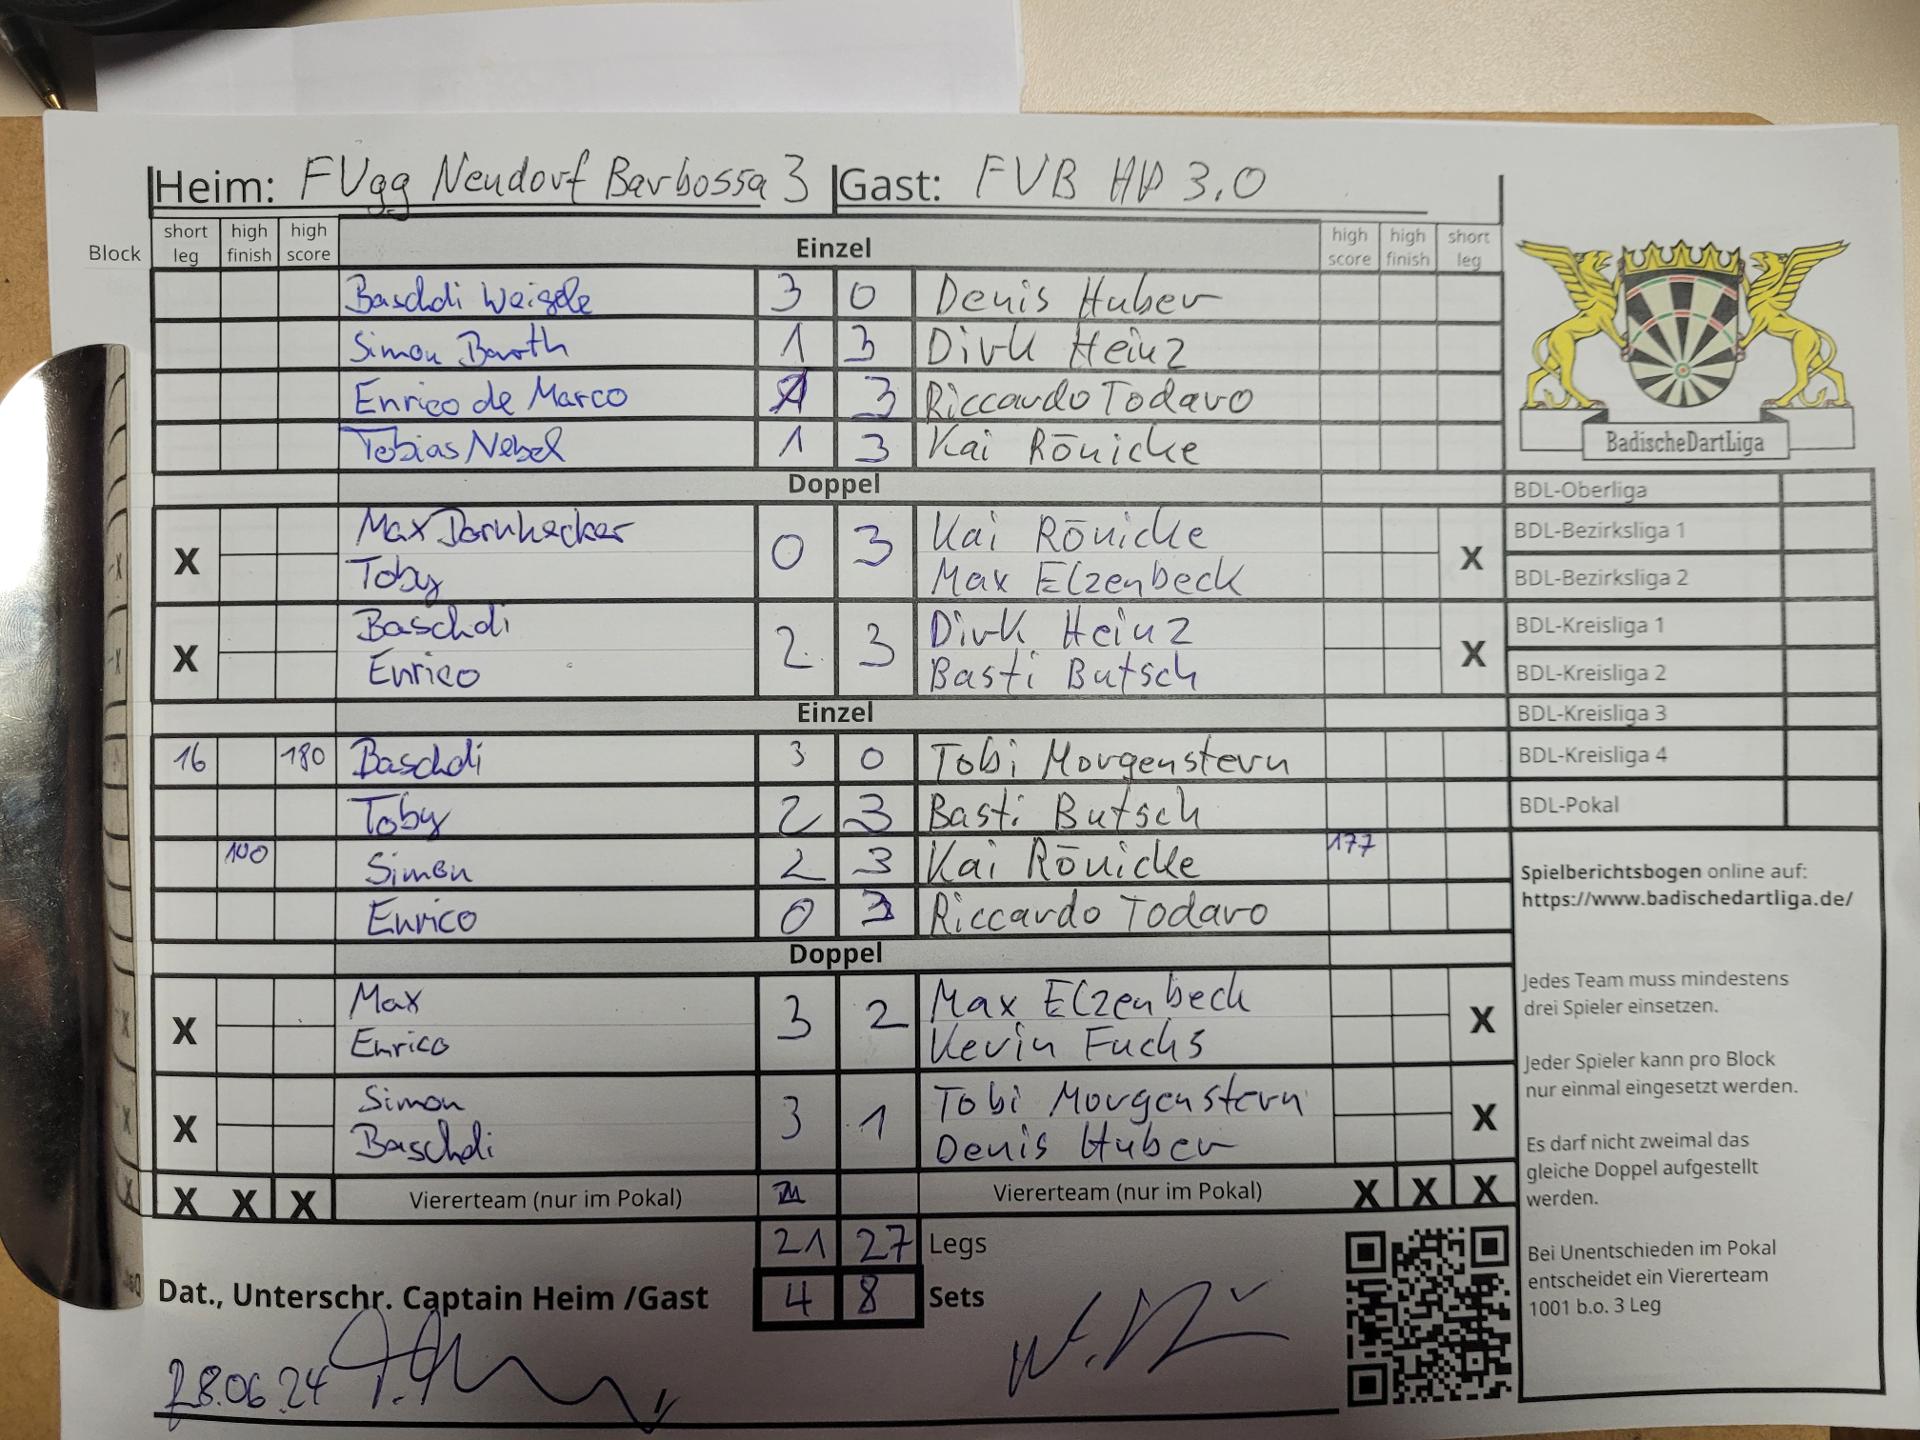 Heim: FVgg Neudorf Barbossa 3 Gast: FVB HD 3.0
Block short leg high finish high score Einzel high score high finish short leg
Baschdi Weigele 3 0 Denis Huber
Simon Barth 1 3 Dirk Heinz
Enrico de Marco 3 Riccardo Todaro
Tobias Nebel 1 3 Kai Rönicke
BadischeDartLiga
Doppel
BDL-Oberliga
X Max Dornhecker 0 3 Kai Rönicke X
Toby Max Elzenbeck
BDL-Bezirksliga 1
BDL-Bezirksliga 2
X Baschdi 2 3 Dirk Heinz X
Enrico Basti Butsch
BDL-Kreisliga 1
BDL-Kreisliga 2
Einzel
BDL-Kreisliga 3
16 180 Baschdi 3 0 Tobi Morgenstern
BDL-Kreisliga 4
Toby 2 3 Basti Butsch
BDL-Pokal
100 Simon 2 3 Kai Rönicke 177
Enrico 0 3 Riccardo Todaro
Doppel
X Max 3 2 Max Elzenbeck X
Enrico Kevin Fuchs
X Simon 3 1 Tobi Morgenstern X
Baschdi Denis Huber
X X X Viererteam (nur im Pokal) Viererteam (nur im Pokal) X X X
21 27 Legs
Dat., Unterschr. Captain Heim /Gast 4 8 Sets
28.06.24
Spielberichtsbogen online auf:
https://www.badischedartliga.de/
Jedes Team muss mindestens
drei Spieler einsetzen.
Jeder Spieler kann pro Block
nur einmal eingesetzt werden.
Es darf nicht zweimal das
gleiche Doppel aufgestellt
werden.
Bei Unentschieden im Pokal
entscheidet ein Viererteam
1001 b.o. 3 Leg